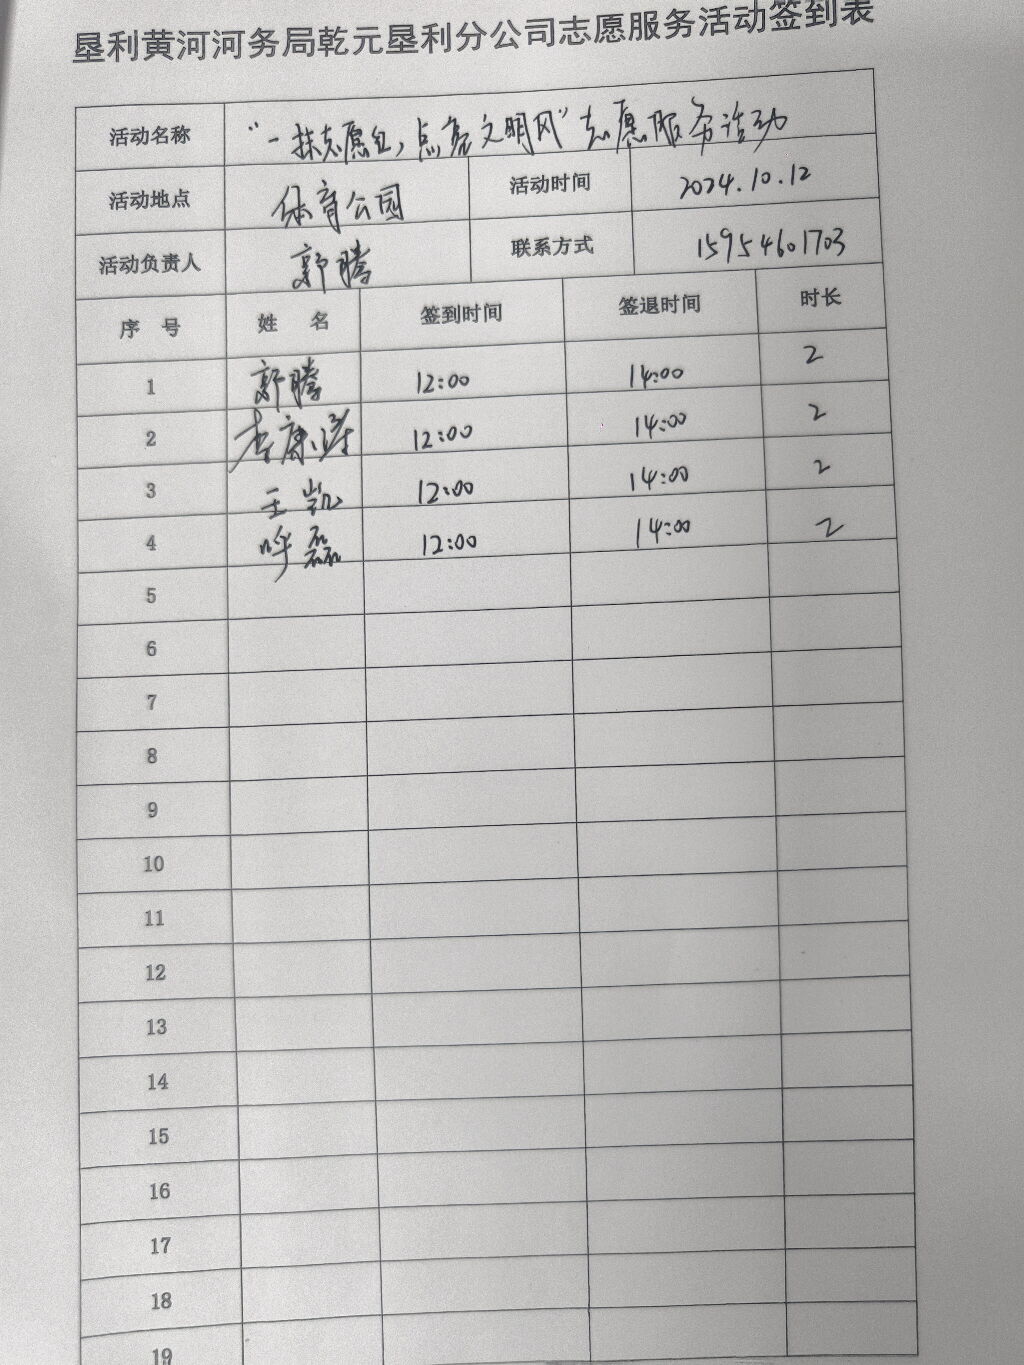 垦利黄河河务局乾元垦利分公司志愿服务活动签到表
活动名称 “一抹志愿红，点亮文明风”志愿服务活动
活动地点 体育公园 活动时间 2024.10.12
活动负责人 郭腾 联系方式 15954601703
序 号 姓 名 签到时间 签退时间 时长
1 郭腾 12:00 14:00 2
2 李康涛 12:00 14:00 2
3 王凯 12:00 14:00 2
4 磊 12:00 14:00 2
5
6
7
8
9
10
11
12
13
14
15
16
17
18
19